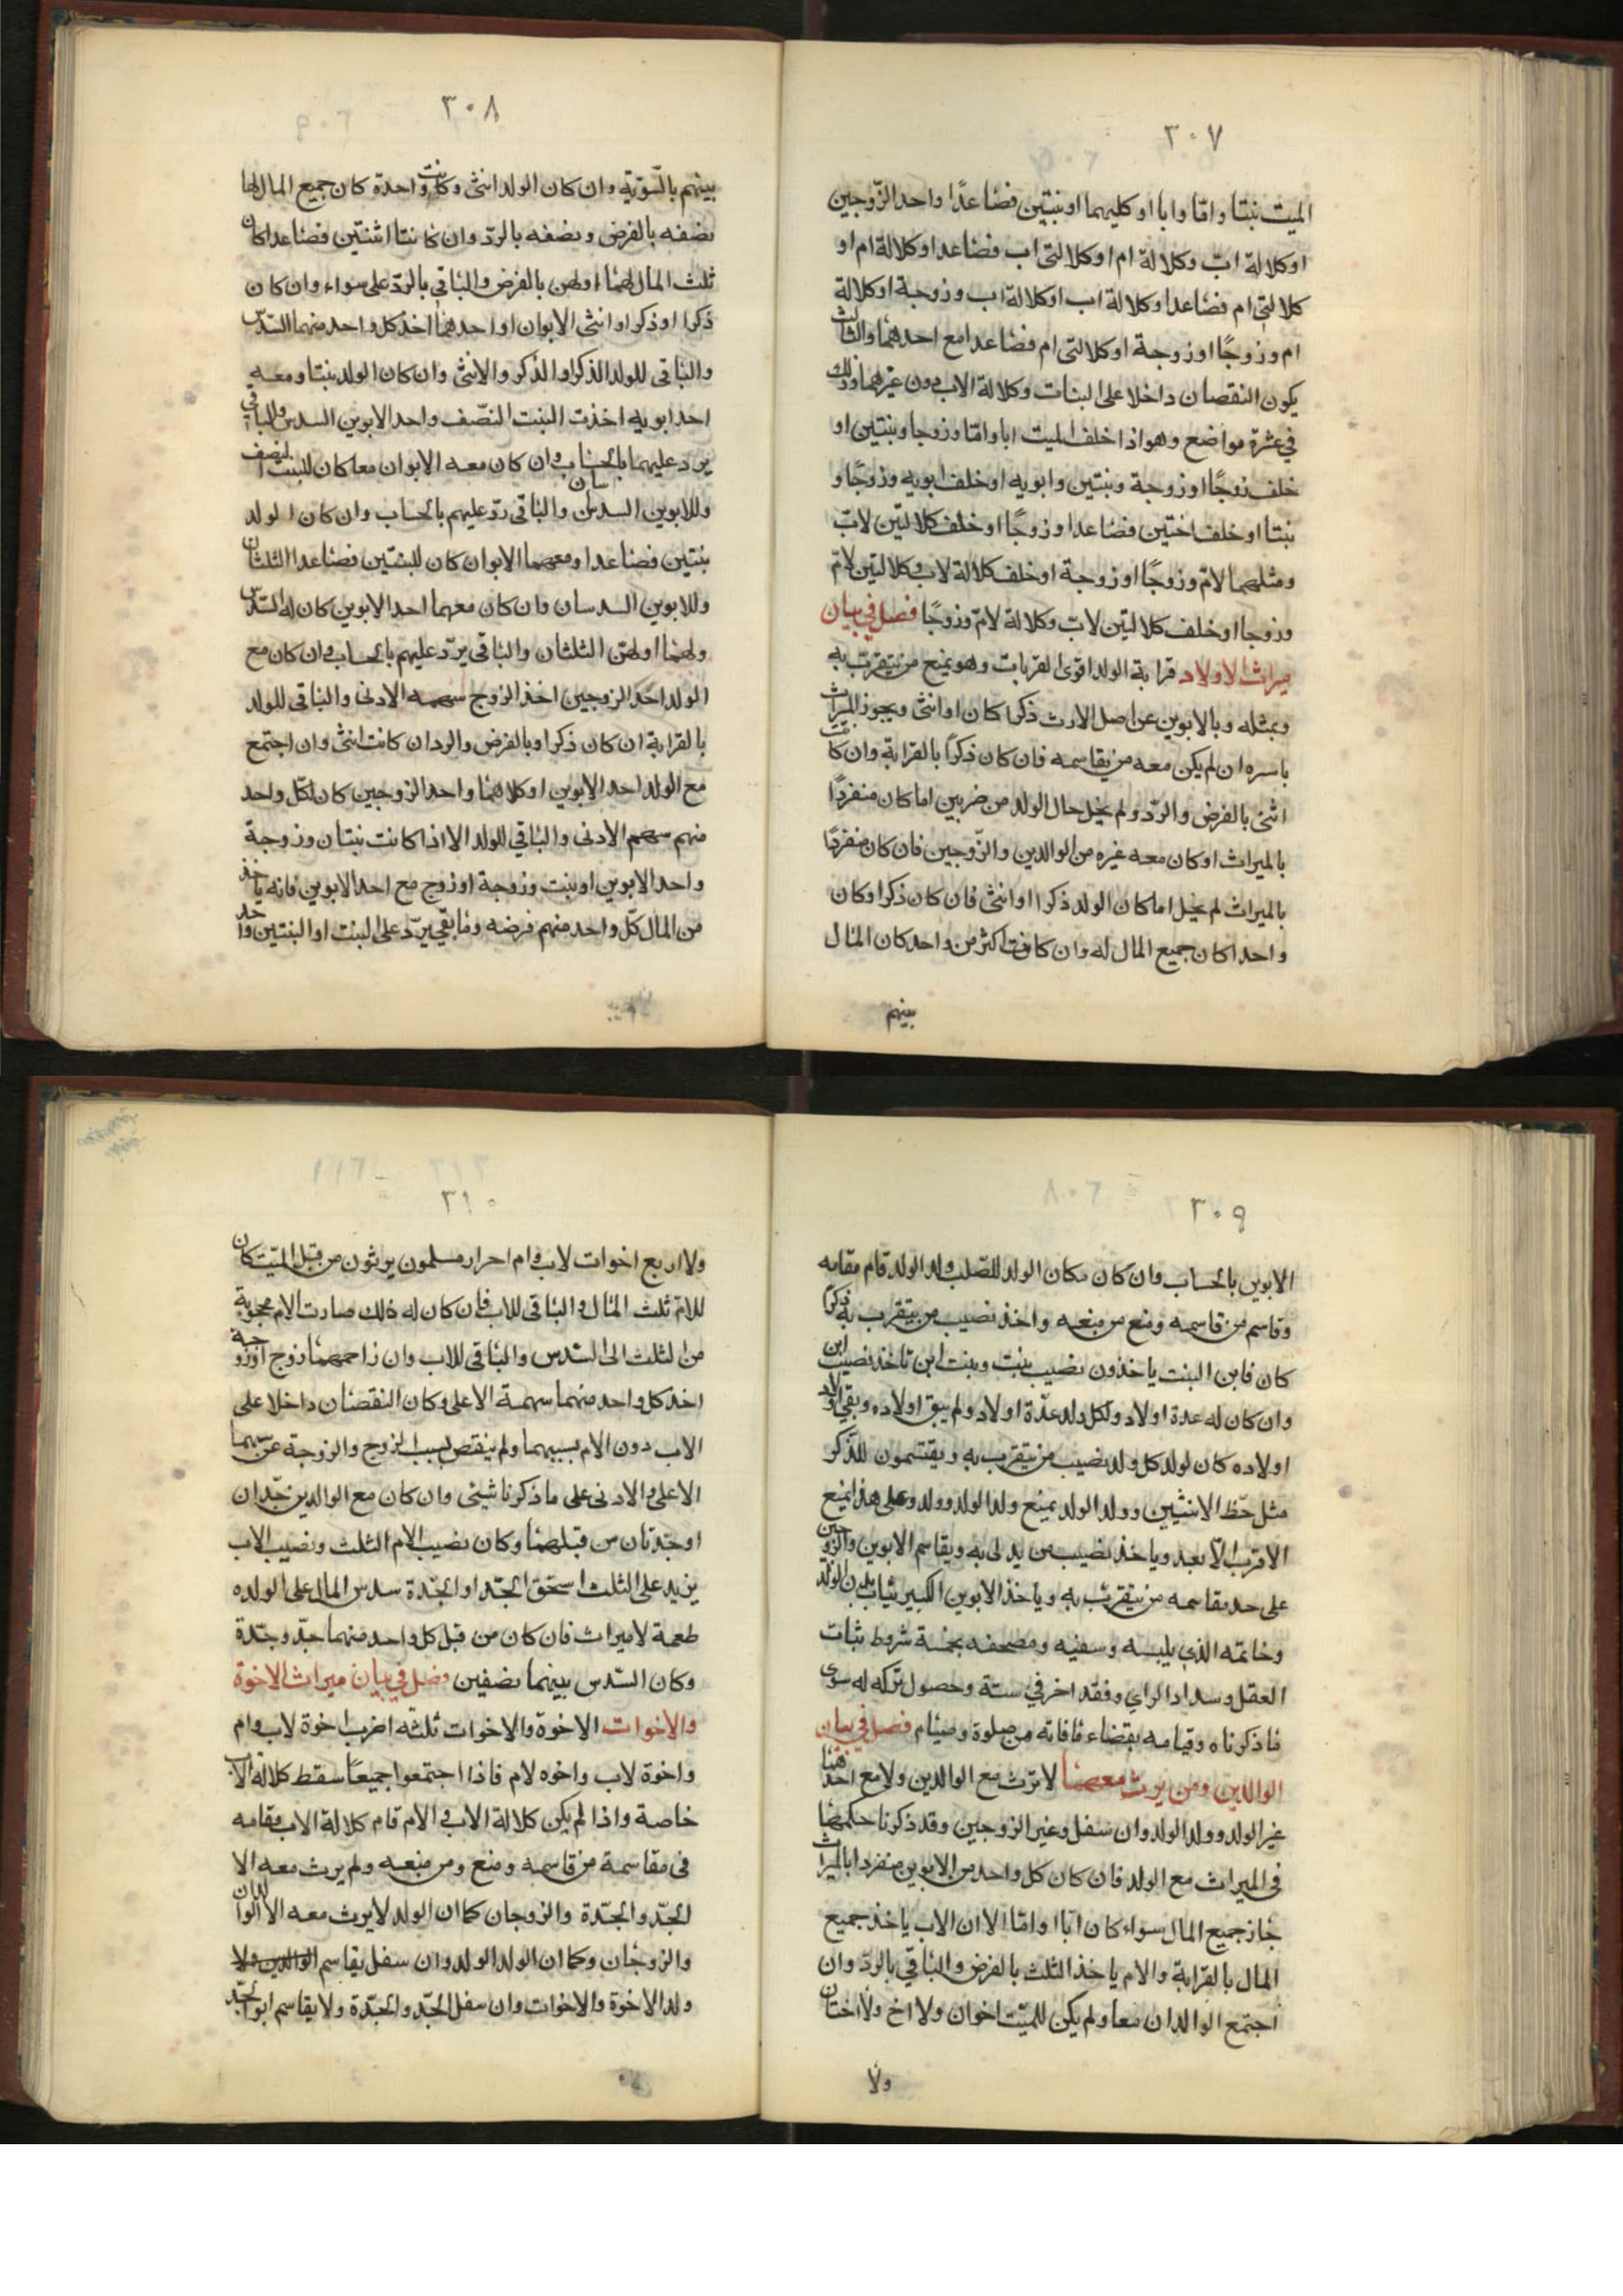 ٣٠٧
الميت بنتا واما وابا او كليهما او بنتين فصاعدًا واحد الزّوجين
او كلالة ابّ وكلالة ام او كلالتى اب فصاعدا او كلالة ام او
كلالتى ام فصاعدا او كلالة اب او كلالة اب وزوجة او كلالة
ام وزوجًا او زوجة او كلالتى ام فصاعدا مع احدهما والثالث
يكون النقصان داخلا على البنات وكلالة الاب دون غيرهما وذلك
في عشرة مواضع وهو اذا خلف الميت ابا واما وزوجا وبنتين او
خلف زوجًا او زوجة وبنتين وابويه او خلف ابويه وزوجًا و
بنتا او خلف اختين فصاعدا وزوجًا او خلف كلالتين لابّ
ومثلهما لامّ وزوجًا او زوجة او خلف كلالة لاب وكلالتين لامّ
وزوجا او خلف كلالتين لابّ وكلالة لامّ وزوجًا فصل في بيان
ميراث الاولاد قرابة الولد اقوى القربات وهو يمنع من يتقرّب به
وبمثله وبالابوين عن اصل الارث ذكرا كان او انثى ويجوز الميراث
باسره ان لم يكن معه من يقاسمه فان كان ذكرًا بالقرابة وان كانت
انثى بالفرض والرّد ولم يخل حال الولد من ضربين اما كان منفردًا
بالميراث او كان معه غيره من الوالدين والزّوجين فان كان منفردًا
بالميراث لم يخل اما كان الولد ذكرا او انثى فان كان ذكرا وكان
واحدا كان جميع المال له وان كانت اكثر من واحد كان المال
بينهم
٣٠٨
بينهم بالسّويّة وان كان الولد انثى وكانت واحدة كان جميع المال لها
نصفه بالفرض ونصفه بالردّ وان كانتا اثنتين فصاعدا كان
ثلث المال لهما او لهن بالفرض والباقي بالردّ على سواء وان كان
ذكرا او ذكرا وانثى الابوان او احدهما اخذ كل واحد منهما السّدس
والباقى للولد الذكر او الذكر والانثى وان كان الولد بنتا ومعه
احد ابويه اخذت البنت النّصف واحد الابوين السدس والباقي
يرد عليهما بالحساب وان كان معه الابوان معا كان للبنت النصف
وللابوين السدسان والباقى ردّ عليهم بالحساب وان كان الولد
بنتين فصاعدا ومعهما الابوان كان للبنتين فصاعدا الثلثان
وللابوين السدسان وان كان معهما احد الابوين كان له السّدس
ولهما او لهنّ الثلثان والباقى يردّ عليهم بالحساب وان كان مع
الولد احد الزوجين اخذ الزوج سهمه الادنى والباقى للولد
بالقرابة ان كان ذكرا وبالفرض والرد ان كانت انثى وان اجتمع
مع الولد احد الابوين او كلاهما واحد الزوجين كان لكلّ واحد
منهم سهم الادنى والباقي للولد الا اذا كانت بنتان وزوجة
واحد الابوين او بنت وزوجة او زوج مع احد الابوين فانه ياخذ
من المال كلّ واحد منهم فرضه وما بقي يردّ على البنت او البنتين واحد
٣٠٩
الابوين بالحساب وان كان مكان الولد للصّلب ولد الولد قام مقامه
وقاسم من قاسمه ومنع من منعه واخذ نصيب من يتقرب به ذكرًا
كان فابن البنت ياخذون نصيب بنت وبنت ابن تاخذ نصيب ابن
وان كان له عدة اولاد ولكل ولد عدّة اولاد ولم يبق اولاده وبقي اولاد
اولاده كان لولد كل ولد نصيب من يتقرب به ويقتسمون للذّكر
مثل حظّ الانثيين وولد الولد يمنع ولد الولد وولد وعلى هذا يمنع
الاقرب الا بعد وياخذ نصيب من يدلى به ويقاسم الابوين والزوجين
على حد مقاسمه من يتقرّب به وياخذ الابوين الكبير ثياب بدن الولد
وخاتمه الذي يلبسه وسفيه ومصحفه بخمسة شروط بثبات
العقل وسداد الراي وفقد اخر في سنّة وحصول تركه له سوى
ما ذكرناه وقيامه بقضاء ما فاته من صلوة وصيام فصل في بيان
الوالدين ومن يرث معهما لا ترث مع الوالدين ولا مع احدهما
غير الولد وولد الولد وان سفل وغير الزوجين وقد ذكرنا حكمهما
فى الميراث مع الولد فان كان كل واحد من الابوين منفردا بالميراث
حاز جميع المال سواء كان ابا او امّا الا ان الاب ياخذ جميع
المال بالقرابة والام ياخذ الثلث بالفرض والباقي بالردّ وان
اجتمع الوالدان معا ولم يكن للميّت اخوان ولا اخ ولا اختان
ولا
٣١٠
ولا اربع اخوات لاب وام احرار مسلمون يرثون من قبل الميّت كان
للامّ ثلث المال والباقى للاب فان كان له ذلك صارت الام محجوبة
من الثلث الى السّدس والباقى للاب وان زاحمهما زوج او زوجة
اخذ كل واحد منهما سهمة الاعلى وكان النقصان داخلا على
الاب دون الام بسببهما ولم ينقص بسبب الزوج والزوجة عن سهمهما
الاعلى والادنى على ما ذكرنا شيئى وان كان مع الوالدين جدّان
او جدّتان من قبلهما وكان نصيب الام الثلث ونصيب الاب
يزيد على الثلث استحق الجدّ او الجدّة سدس المال على الولده
طعمة لا ميراث فان كان من قبل كل واحد منهما جدّ وجدّة
وكان السّدس بينهما نصفين فصل في بيان ميراث الاخوة
والاخوات الاخوة والاخوات ثلثه اضرب اخوة لاب وام
واخوة لاب واخوه لام فاذا اجتمعوا جميعًا سقط كلالة الاب
خاصة واذا لم يكن كلالة الاب والام قام كلالة الاب مقامه
فى مقاسمة من قاسمه ومنع ومن منعه ولم يرث معه الا
الجدّ والجدّة والزوجان كما ان الولد لا يرث معه الا الوالدان
والزوجان وكما ان الولد الولد وان سفل يقاسم الوالدين ولا
ولد الاخوة والاخوات وان سفل الجدّ والجدّة ولا يقاسم ابو الجدّ